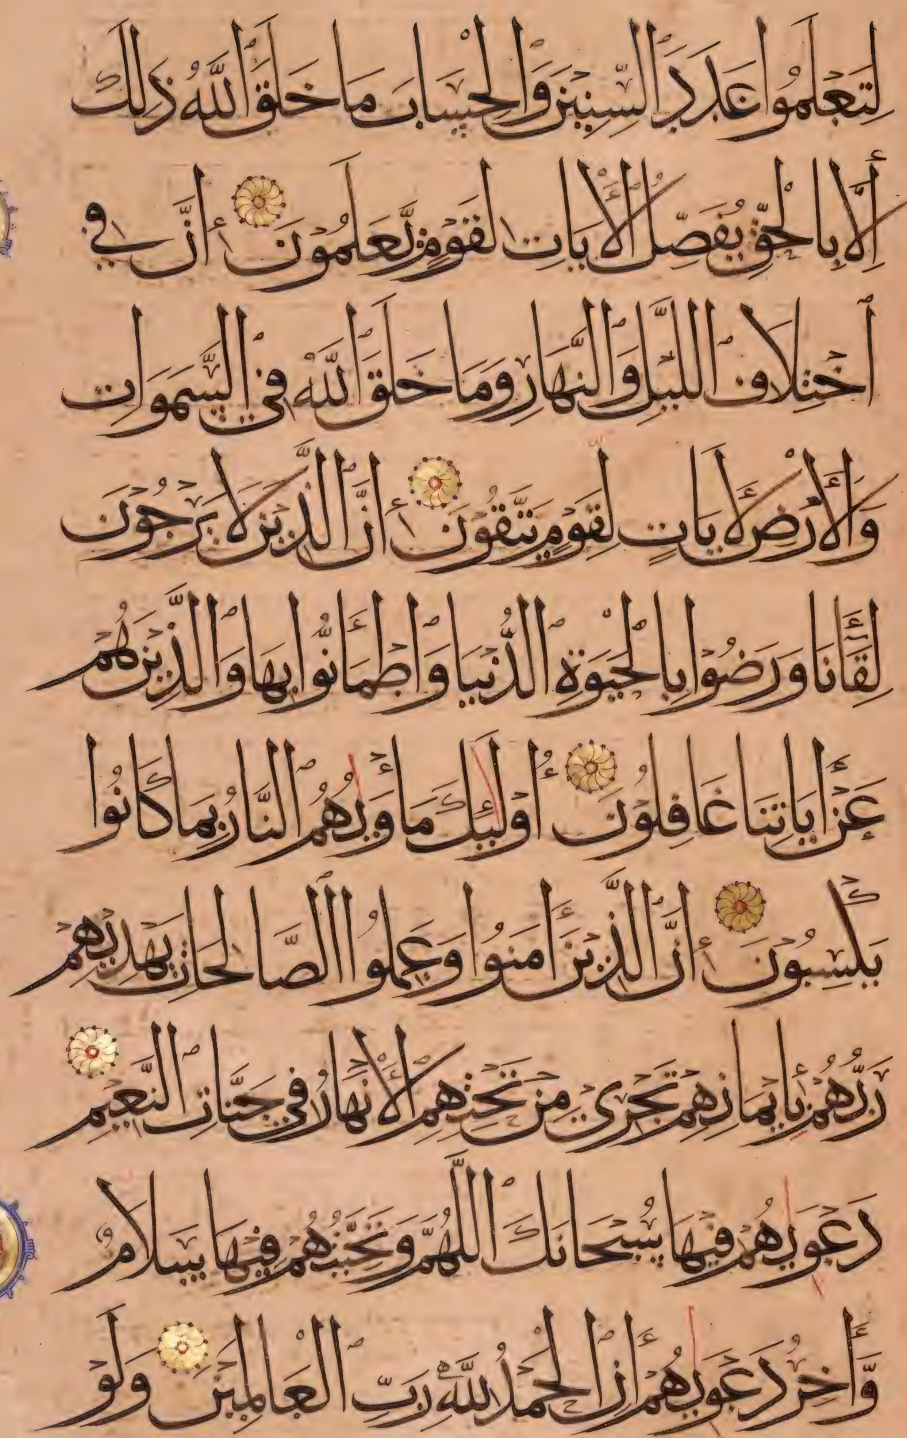 لِتَعْلَمُوا عَدَدَ السِّنِينَ وَالْحِسَابَ مَا خَلَقَ اللَّهُ ذَلِكَ
إِلَّا بِالْحَقِّ يُفَصِّلُ الْأَيَاتِ لِقَوْمٍ يَعْلَمُونَ إِنَّ فِي
اخْتِلَافِ اللَّيْلِ وَالنَّهَارِ وَمَا خَلَقَ اللَّهُ فِي السَّمَوَاتِ
وَالْأَرْضِ لَأَيَاتٍ لِقَوْمٍ يَتَّقُونَ إِنَّ الَّذِينَ لَا يَرْجُونَ
لِقَاءَنَا وَرَضُوا بِالْحَيَوةِ الدُّنْيَا وَاطْمَأَنُّوا بِهَا وَالَّذِينَ هُمْ
عَنْ أَيَاتِنَا غَافِلُونَ أُولَئِكَ مَأْوَيهُمُ النَّارُ بِمَا كَانُوا
يَكْسِبُونَ إِنَّ الَّذِينَ أَمَنُوا وَعَمِلُوا الصَّالِحَاتِ يَهْدِيهِمْ
رَبُّهُمْ بِإِيمَانِهِمْ تَجْرِي مِنْ تَحْتِهِمُ الْأَنْهَارُ فِي جَنَّاتِ النَّعِيمِ
دَعْوَيهُمْ فِيهَا سُبْحَانَكَ اللَّهُمَّ وَتَحِيَّتُهُمْ فِيهَا سَلَامٌ
وَأَخِرُ دَعْوَيهُمْ أَنِ الْحَمْدُ لِلَّهِ رَبِّ الْعَالَمِينَ وَلَوْ